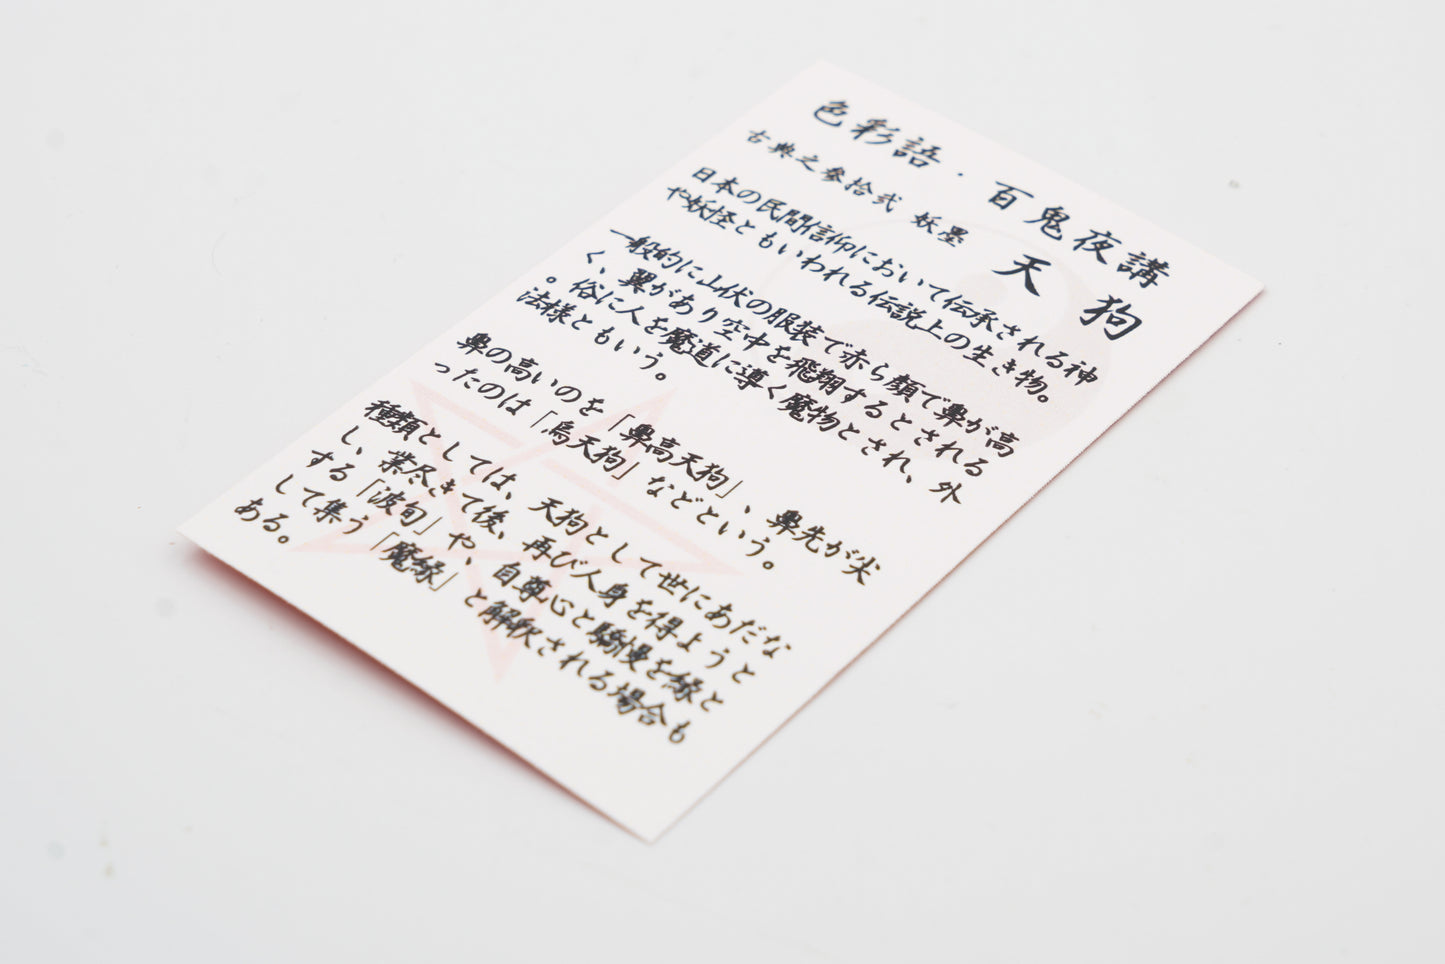 色彩語・百鬼夜講
古典之参拾弐 妖墨 天狗
日本の民間信仰において伝承される神
や妖怪ともいわれる伝説上の生き物。
一般的に山伏の服装で赤ら顔で鼻が高
く、翼があり空中を飛翔するとされる
。俗に人を魔道に導く魔物とされ、外
法様ともいう。
鼻の高いのを「鼻高天狗」、鼻先が尖
ったのは「烏天狗」などという。
種類としては、天狗として世にあだな
し、業尽きて後、再び人身を得ようと
する「波旬」や、自尊心と驕慢を縁と
して集う「魔縁」と解釈される場合も
ある。